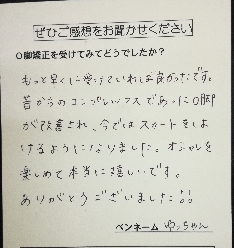 ぜひご感想をお聞かせください
O脚矯正を受けてみてどうでしたか?
もっと早くに受けていれば良かったです。
昔からのコンプレックスであったO脚
が改善され、今ではスカートをは
けるようになりました。オシャレを
楽しめて本当に嬉しいです。
ありがとうございました!!
ペンネーム ゆっちゃん